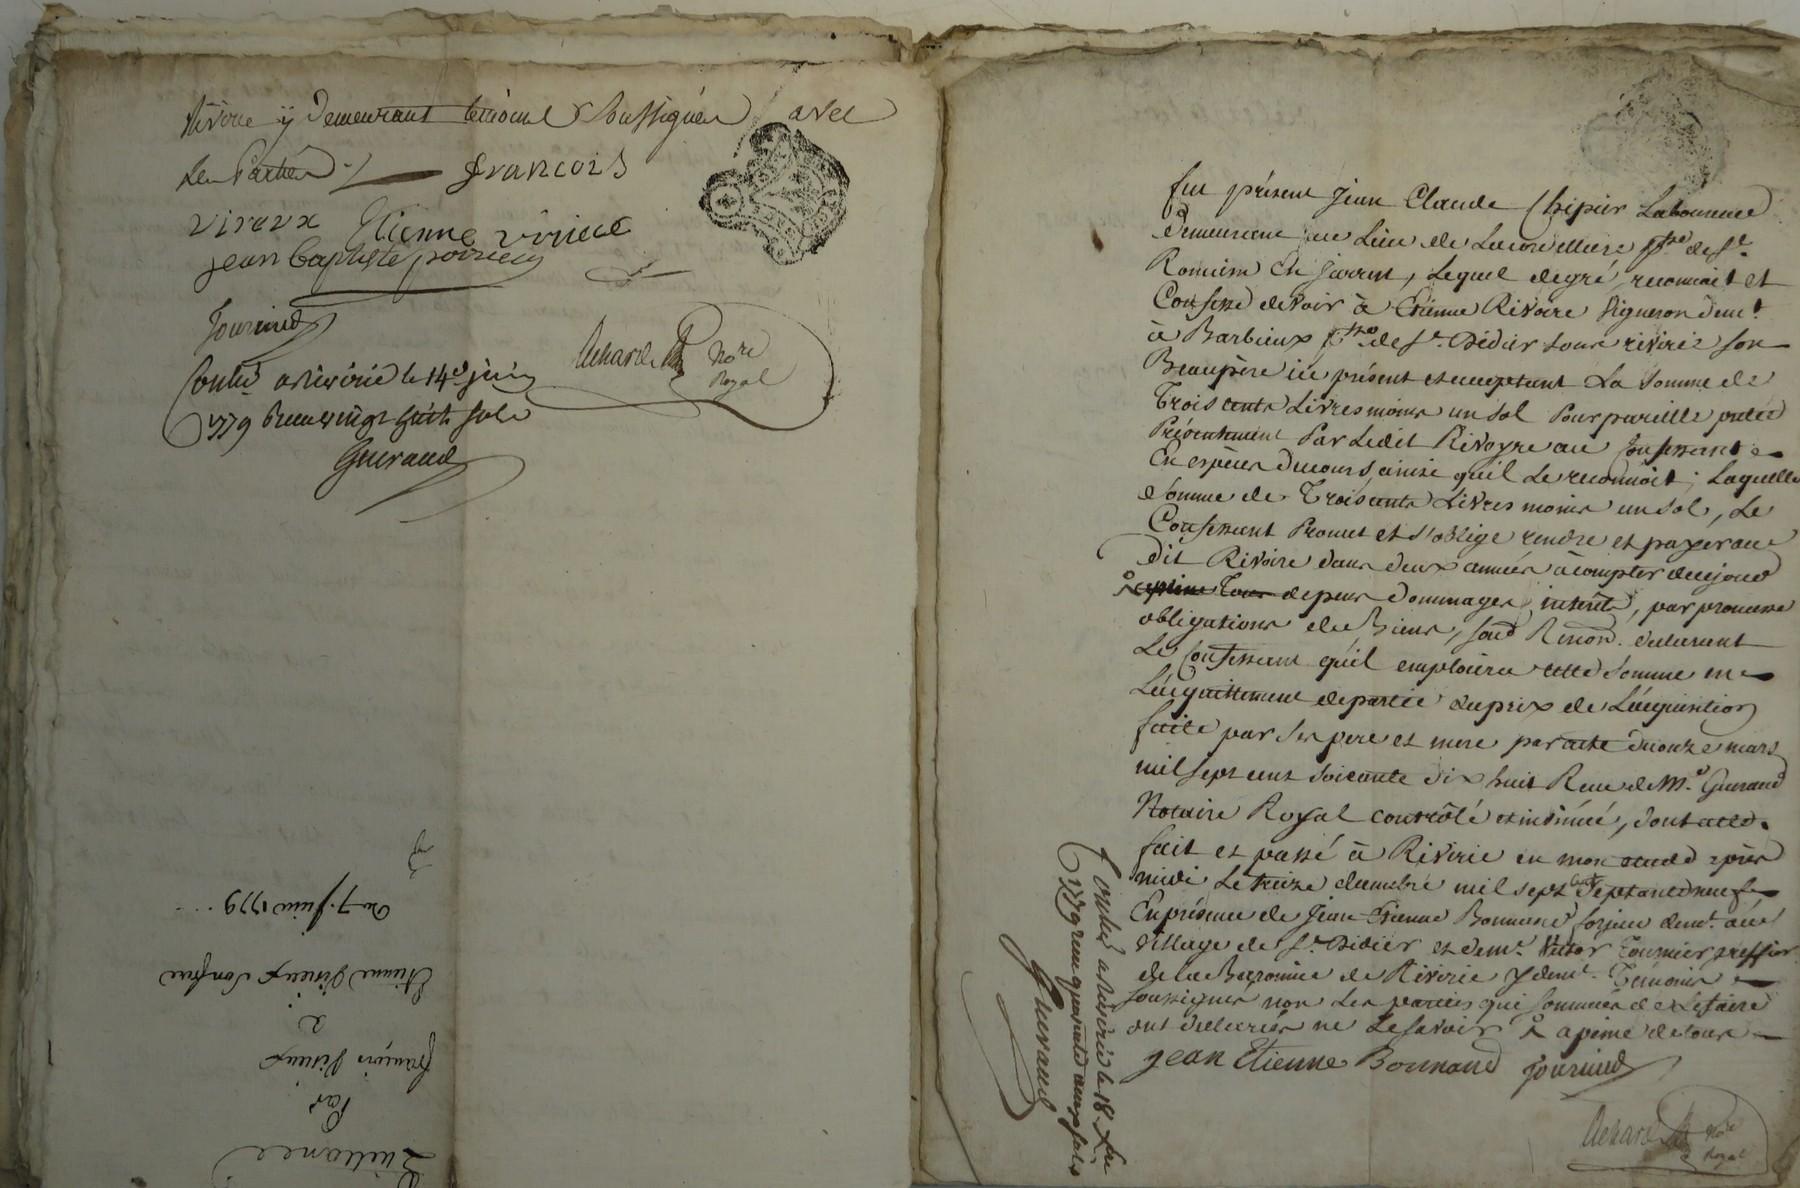 Riverie y demeurant témoins soussignés avec
les Parties ./. françois
vireux Etienne virieux
jean baptiste poiriecu
fournier
Achard Nore
Royal
Contlé a riverie le 14e juin
1779 Reçu vingt huit sols
Gueraud
Quittance
Par
françois Virieux
a
Etienne Virieux son frere
Du 7. Juin 1779
Fut présent Jean Claude Chipier Laboureur
demeurant au Lieu de Laconilliere psse de St
Romain En Jarrest, Lequel de gré, reconnait et
Confesse devoir à Etienne Rivoire Vigneron demt
à Barbieux psse de St Didier sous riverie son
Beaupère ici présent et acceptant La somme de
Trois cents Livres moins un sol Pour pareille pretée
Présentement Par Ledit Rivoyre au Confessant
En espèces du cours, ainsi quil Le reconnoit; Laquelle
somme de Trois cents Livres moins un sol, Le
Confessant Promet et s'oblige rendre et payer au
dit Rivoire dans deux années à compter de ce jour
à peine Tous depens dommages interêts, par promesse
obligations de Biens, soud Renon. declarant
Le Confessant quil emploiera cette somme en
L'acquittement de partie du prix de L'acquisition
faite par ses pere et mere par acte du onze mars
mil sept cent soixante dix huit Reçu de Me Gueraud
Notaire Royal contrôlé et insinué, dont acte.
fait et passé à Riverie en mon etude après
midi Le treize decembre mil sept cent septante neuf
En présence de Jean Etienne Bonnand demt au
village de St Didier et de mr Victor Fournier greffier
de la Baronnie de Riverie y demt Témoins
soussignés non Les parties qui sommées de Le faire
ont déclarés ne Le savoir à peine de tous
jean Etienne Bonnand fournier
Achard Nore
Royal
Contlé a riverie le 18 Xbre
1779 reçu quarante deux sols
Gueraud